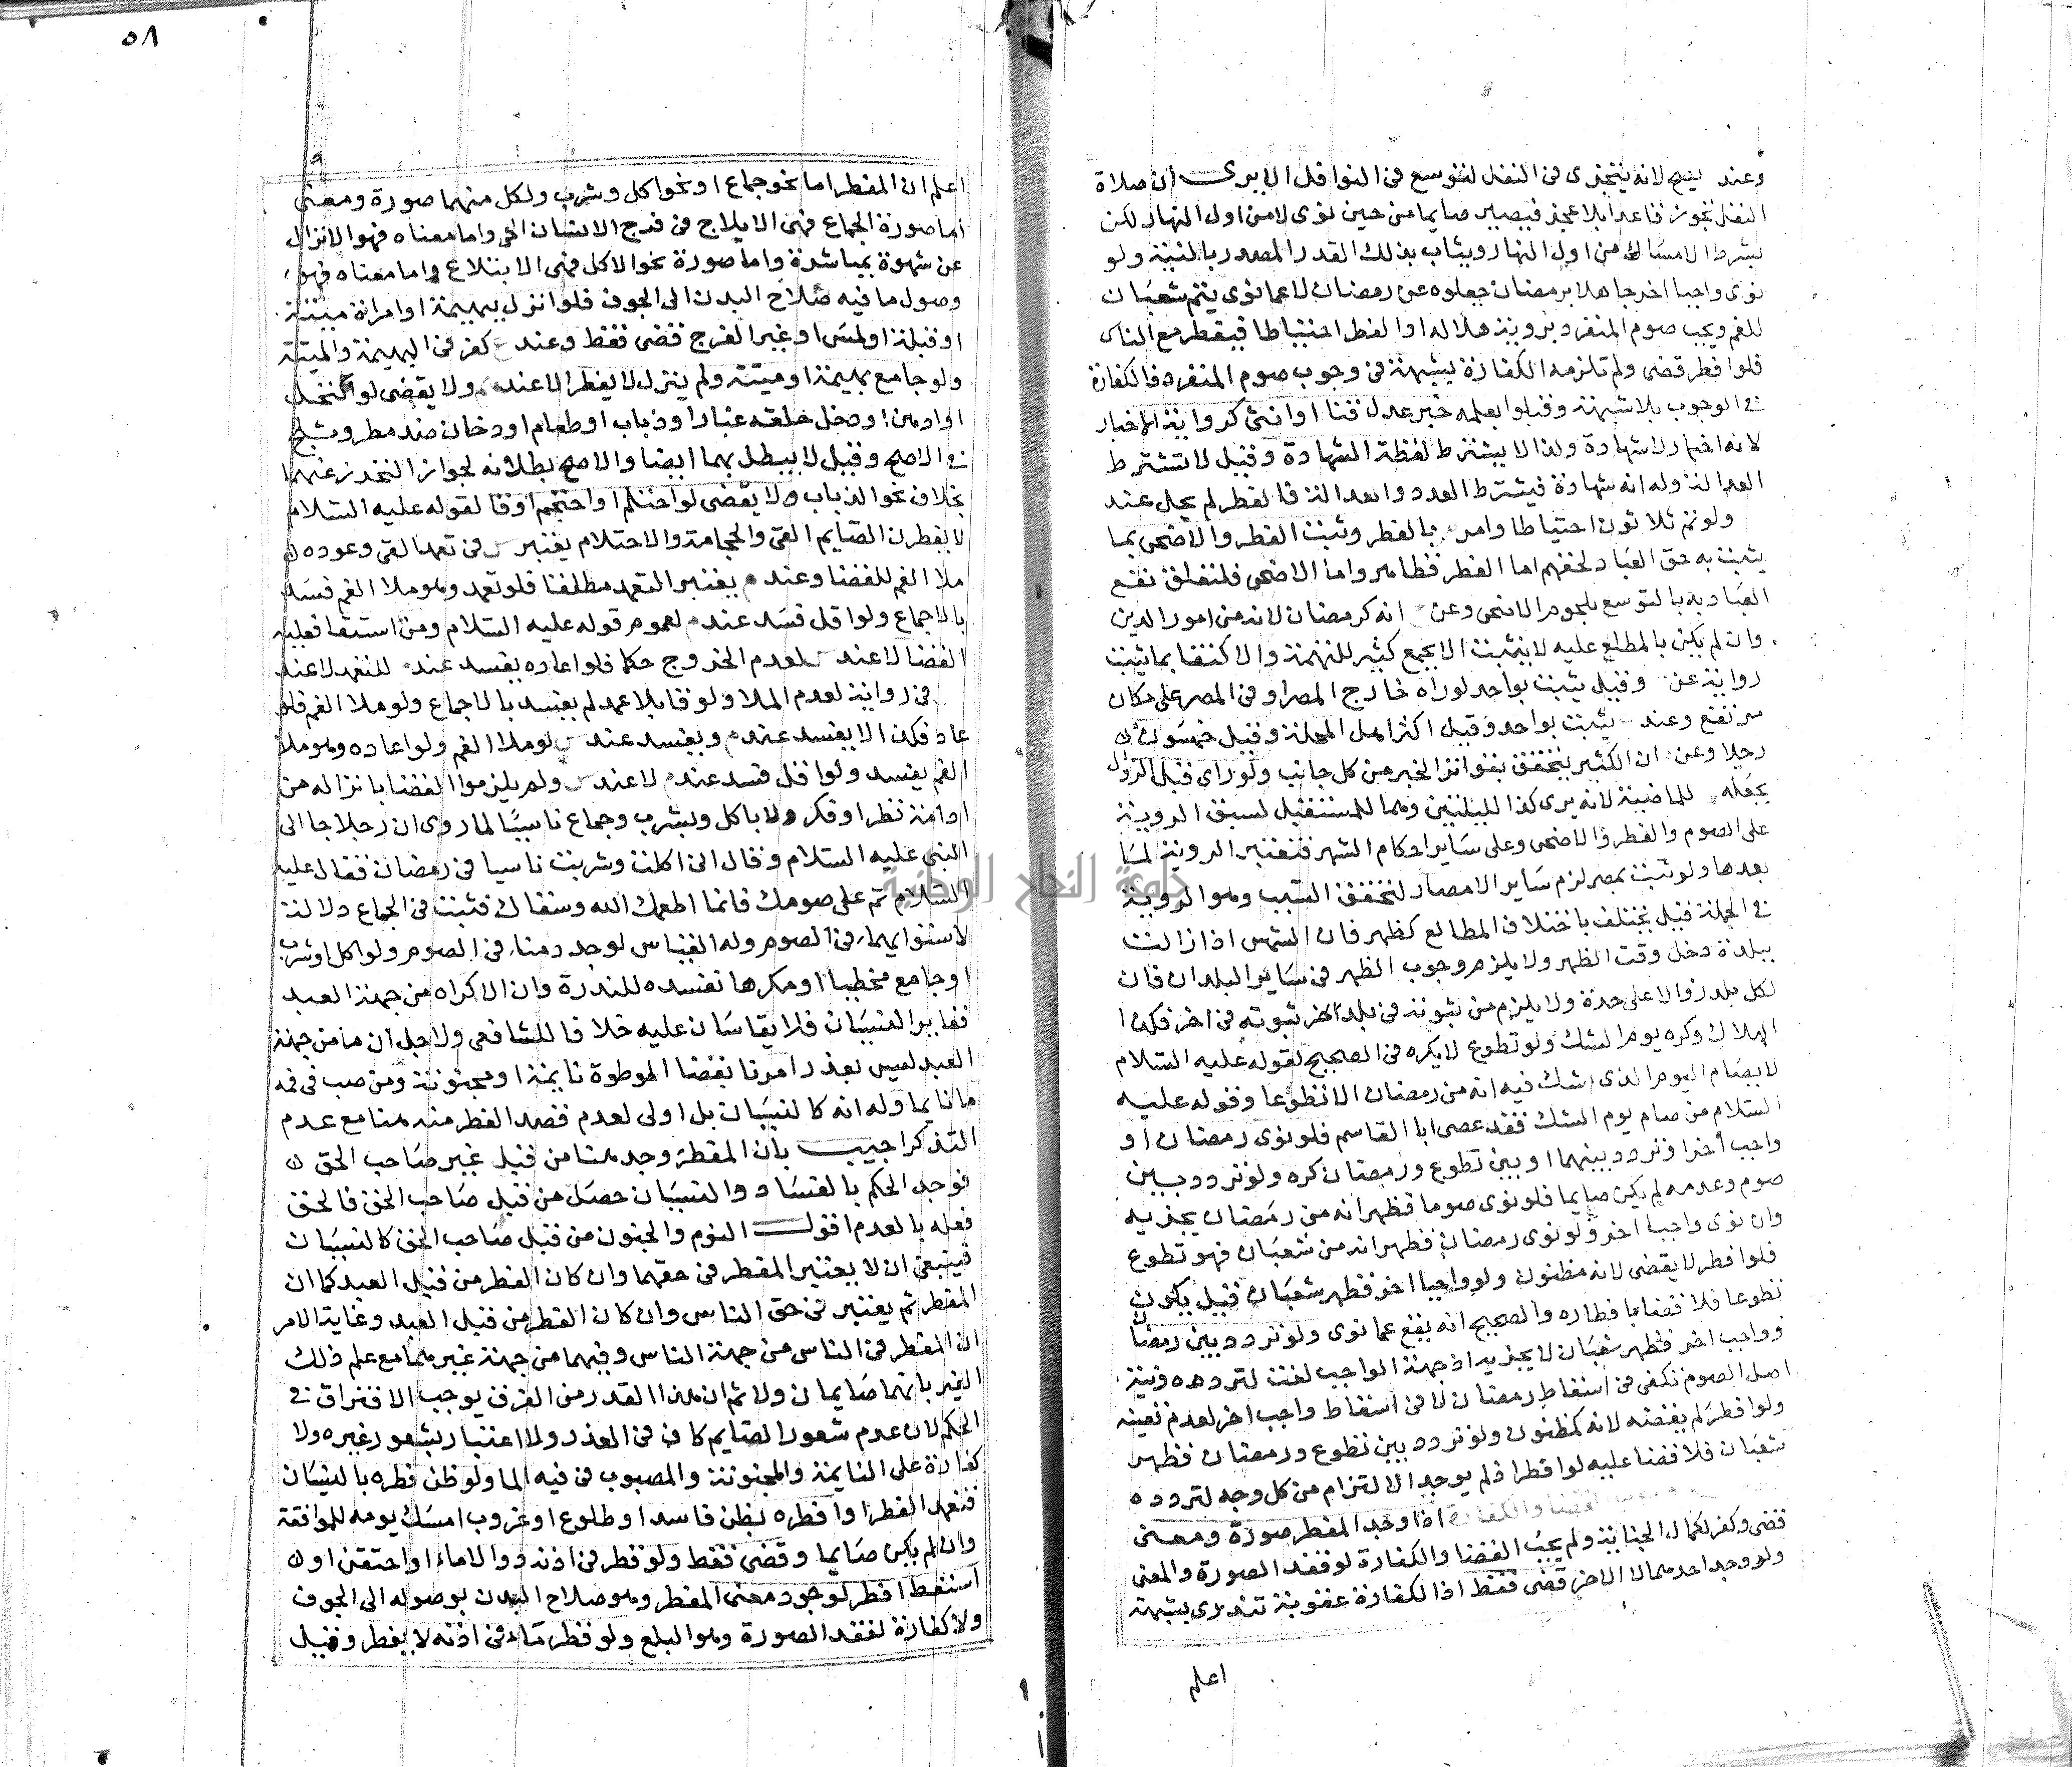 وعند يصح لانه يتجزى فى النفل لتوسع فى النوافل الا يرى ان صلاة
النفل تجوز قاعدا بلا عجز فيصير صايما من حين نوى لا من اول النهار لكن
بشرط الامساك من اول النهار ويثاب بذلك القدر المصدر بالنية ولو
نوى واجبا اخر جاهلا برمضان جعلوه عن رمضان لا عما نوى يتم شعبان
للغم ويجب صوم المنفرد بروية هلاله او الفطر احتياطا فيفطر مع الناس
فلو افطر قضى ولم تلزمه الكفارة بشبهة فى وجوب صوم المنفرد فالكفارة
فى الوجوب بلا شبهة وقبلوا بعلمه خبر عدل قنا او انثى كرواية الاخبار
لانه اخبار لا شهادة ولذا لا يشترط لفظة الشهادة وقيل لا تشترط
العدالة وله انه شهادة فيشترط العدد والعدالة فالفطر لم يحل عند
ولو تم ثلاثون احتياطا وامر بالفطر وثبت الفطر والاضحى بما
يثبت به حق العباد لحقهم اما الفطر فظاهر واما الاضحى فلتعلق نفع
العباد به بالتوسع بلحوم الاضحى وعن انه كرمضان لانه من امور الدين
وان لم يكن بالمطلع عليه لا يثبت الا بجمع كثير للتهمة والاكتفا بما يثبت
رواية عن وقيل يثبت بواحد لو راه خارج المصر او فى المصر على مكان
مرتفع وعند يثبت بواحد وقيل اكثر اهل المحلة وقيل خمسون
رجلا وعن ان الكثير يتحقق بتواتر الخبر من كل جانب ولو راى قبل الزوال
يجعله للماضية لانه يرى كذا لليلتين وهما للمستقبل لسبق الروية
على الصوم والفطر والاضحى وعلى ساير احكام الشهر فتعتبر الروية لما
بعدها ولو ثبت بمصر لزم ساير الامصار لتحقق السبب وهو الروية
فى الجملة قيل يختلف باختلاف المطالع كظهر فان الشمس اذا زالت
ببلدة دخل وقت الظهر ولا يلزم وجوب الظهر فى ساير البلدان فان
لكل بلد زوالا على حدة ولا يلزم من ثبوته فى بلد اخر ثبوته فى اخر فكذا
الهلال وكره يوم الشك ولو تطوع لا يكره فى الصحيح لقوله عليه السلام
لا يصام اليوم الذى اشك فيه انه من رمضان الا تطوعا وقوله عليه
السلام من صام يوم الشك فقد عصى ابا القاسم فلو نوى رمضان او
واجب اخر او تردد بينهما او بين تطوع ورمضان كره ولو تردد بين
صوم وعدمه لم يكن صايما فلو نوى صوما فظهر انه من رمضان يجزيه
وان نوى واجبا اخر ولو نوى رمضان فظهر انه من شعبان فهو تطوع
فلو افطر لا يقضى لانه مظنون ولو واجبا اخر فظهر شعبان قيل يكون
تطوعا فلا قضا بافطاره والصحيح انه يقع عما نوى ولو تردد بين رمضان
وواجب اخر فظهر شعبان لا يجزيه اذ جهة الواجب لغت لتردده ونية
اصل الصوم تكفى فى اسقاط رمضان لا فى اسقاط واجب اخر لعدم تعينه
ولو افطر لم يقضه لانه كمظنون ولو تردد بين تطوع ورمضان فظهر
شعبان فلا قضا عليه لو افطر اذ لم يوجد الالتزام من كل وجه لتردده
القضا والكفارة اذا وجد المفطر صورة ومعنى
قضى وكفر لكمال الجناية ولم يجب القضا والكفارة لو فقد الصورة والمعنى
ولو وجد احدهما لا الاخر قضى فقط اذ الكفارة عقوبة تندرى بشبهة
اعلم
٥٨
اعلم ان المفطر اما نحو جماع او نحو اكل وشرب ولكل منهما صورة ومعنى
اما صورة الجماع فهى الايلاج فى فرج الانسان الحى واما معناه فهو الانزال
عن شهوة بمباشرة واما صورة نحو الاكل فهى الابتلاع واما معناه فهو
وصول ما فيه صلاح البدن الى الجوف فلو انزل ببهيمة او امراة ميتة
او قبلة او لمس او غير الفرج قضى فقط وعند كفر فى البهيمة والميتة
ولو جامع بهيمة او ميتة ولم ينزل لا يفطر الا عند ولا يقضى لو اكتحل
او ادهن او دخل حلقه غبار او ذباب او طعام او دخان ضد مطر وثلج
فى الاصح وقيل لا يبطل بهما ايضا والاصح بطلانه لجواز التحرز عنهما
بخلاف نحو الذباب ولا يقضى لو احتلم او احتجم او قا لقوله عليه السلام
لا يفطرن الصايم القى والحجامة والاحتلام يعتبر س فى تعمد القى وعوده
ملا الفم للقضا وعند م يعتبر التعمد مطلقا فلو تعمد وهو ملا الفم فسد
بالاجماع ولو اقل فسد عند م لعموم قوله عليه السلام ومن استقا فعليه
القضا لا عند س لعدم الخروج حكما فلو اعاده يفسد عند للتعمد لا عند
فى رواية لعدم الملا ولو قا بلا عمد لم يفسد بالاجماع ولو ملا الفم فلو
عاد فكذا لا يفسد عند م ويفسد عند س لو ملا الفم ولو اعاده وهو ملا
الفم يفسد ولو اقل فسد عند م لا عند س ولم يلزموا القضا بانزاله من
ادامة نظر او فكر ولا باكل وشرب وجماع ناسيا لما روى ان رجلا جا الى
النبى عليه السلام وقال انى اكلت وشربت ناسيا فى رمضان فقال عليه
السلام تم على صومك فانما اطعمك الله وسقاك فثبت فى الجماع دلالة
لاستوايهما فى الصوم وله القياس لوجد دمنا فى الصوم ولو اكل او شرب
او جامع مخطيا او مكرها تفسده للندرة وان الاكراه من جهة العبد
فغاير النسيان فلا يقاسان عليه خلافا للشافعى ولاجل ان ما من جهة
العبد ليس بعذر امرنا بقضا الموطوة نايمة او مجنونة ومن صب فى فمه
ما نايما وله انه كالنسيان بل اولى لعدم قصد الفطر منه هنا مع عدم
التذكر اجيب بان المفطر وجد هنا من قبل غير صاحب الحق
فوجد الحكم بالفساد والنسيان حصل من قبل صاحب الحق فالحق
فعله بالعدم اقول النوم والجنون من قبل صاحب الحق كالنسيان
فينبغى ان لا يعتبر المفطر فى حقهما وان كان الفطر من قبل العبد كما ان
المفطر لم يعتبر فى حق الناسى وان كان الفطر من قبل العبد وغاية الامر
ان المفطر فى الناسى من جهة الناسى وفيهما من جهة غيرهما مع علم ذلك
الغير بانهما صايمان ولا ثم ان هذا القدر من الفرق يوجب الافتراق فى
الحكم لان عدم شعور الصايم كاف فى العذر ولا اعتبار بشعور غيره ولا
كفارة على النايمة والمجنونة والمصبوب فى فيه الما ولو ظن فطره بالنسيان
فتعمد الفطر او افطره بظن فاسد او طلوع او غروب امسك يومه للموافقة
وان لم يكن صايما وقضى فقط ولو قطر فى اذنه دوا لا ماء او احتقن او
استعط افطر لوجود معنى المفطر وهو صلاح البدن بوصوله الى الجوف
ولا كفارة لفقد الصورة وهو البلع ولو قطر ماء فى اذنه لا يفطر وقيل
جامعة النجاح الوطنية